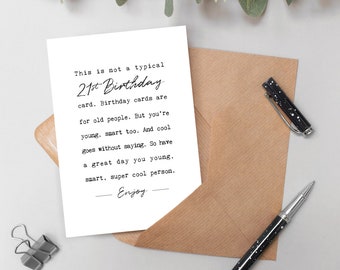 This is not a typical
21st Birthday
card. Birthday cards are
for old people. But you're
young, smart too. And cool
goes without saying. So have
a great day you young,
smart, super cool person.
Enjoy